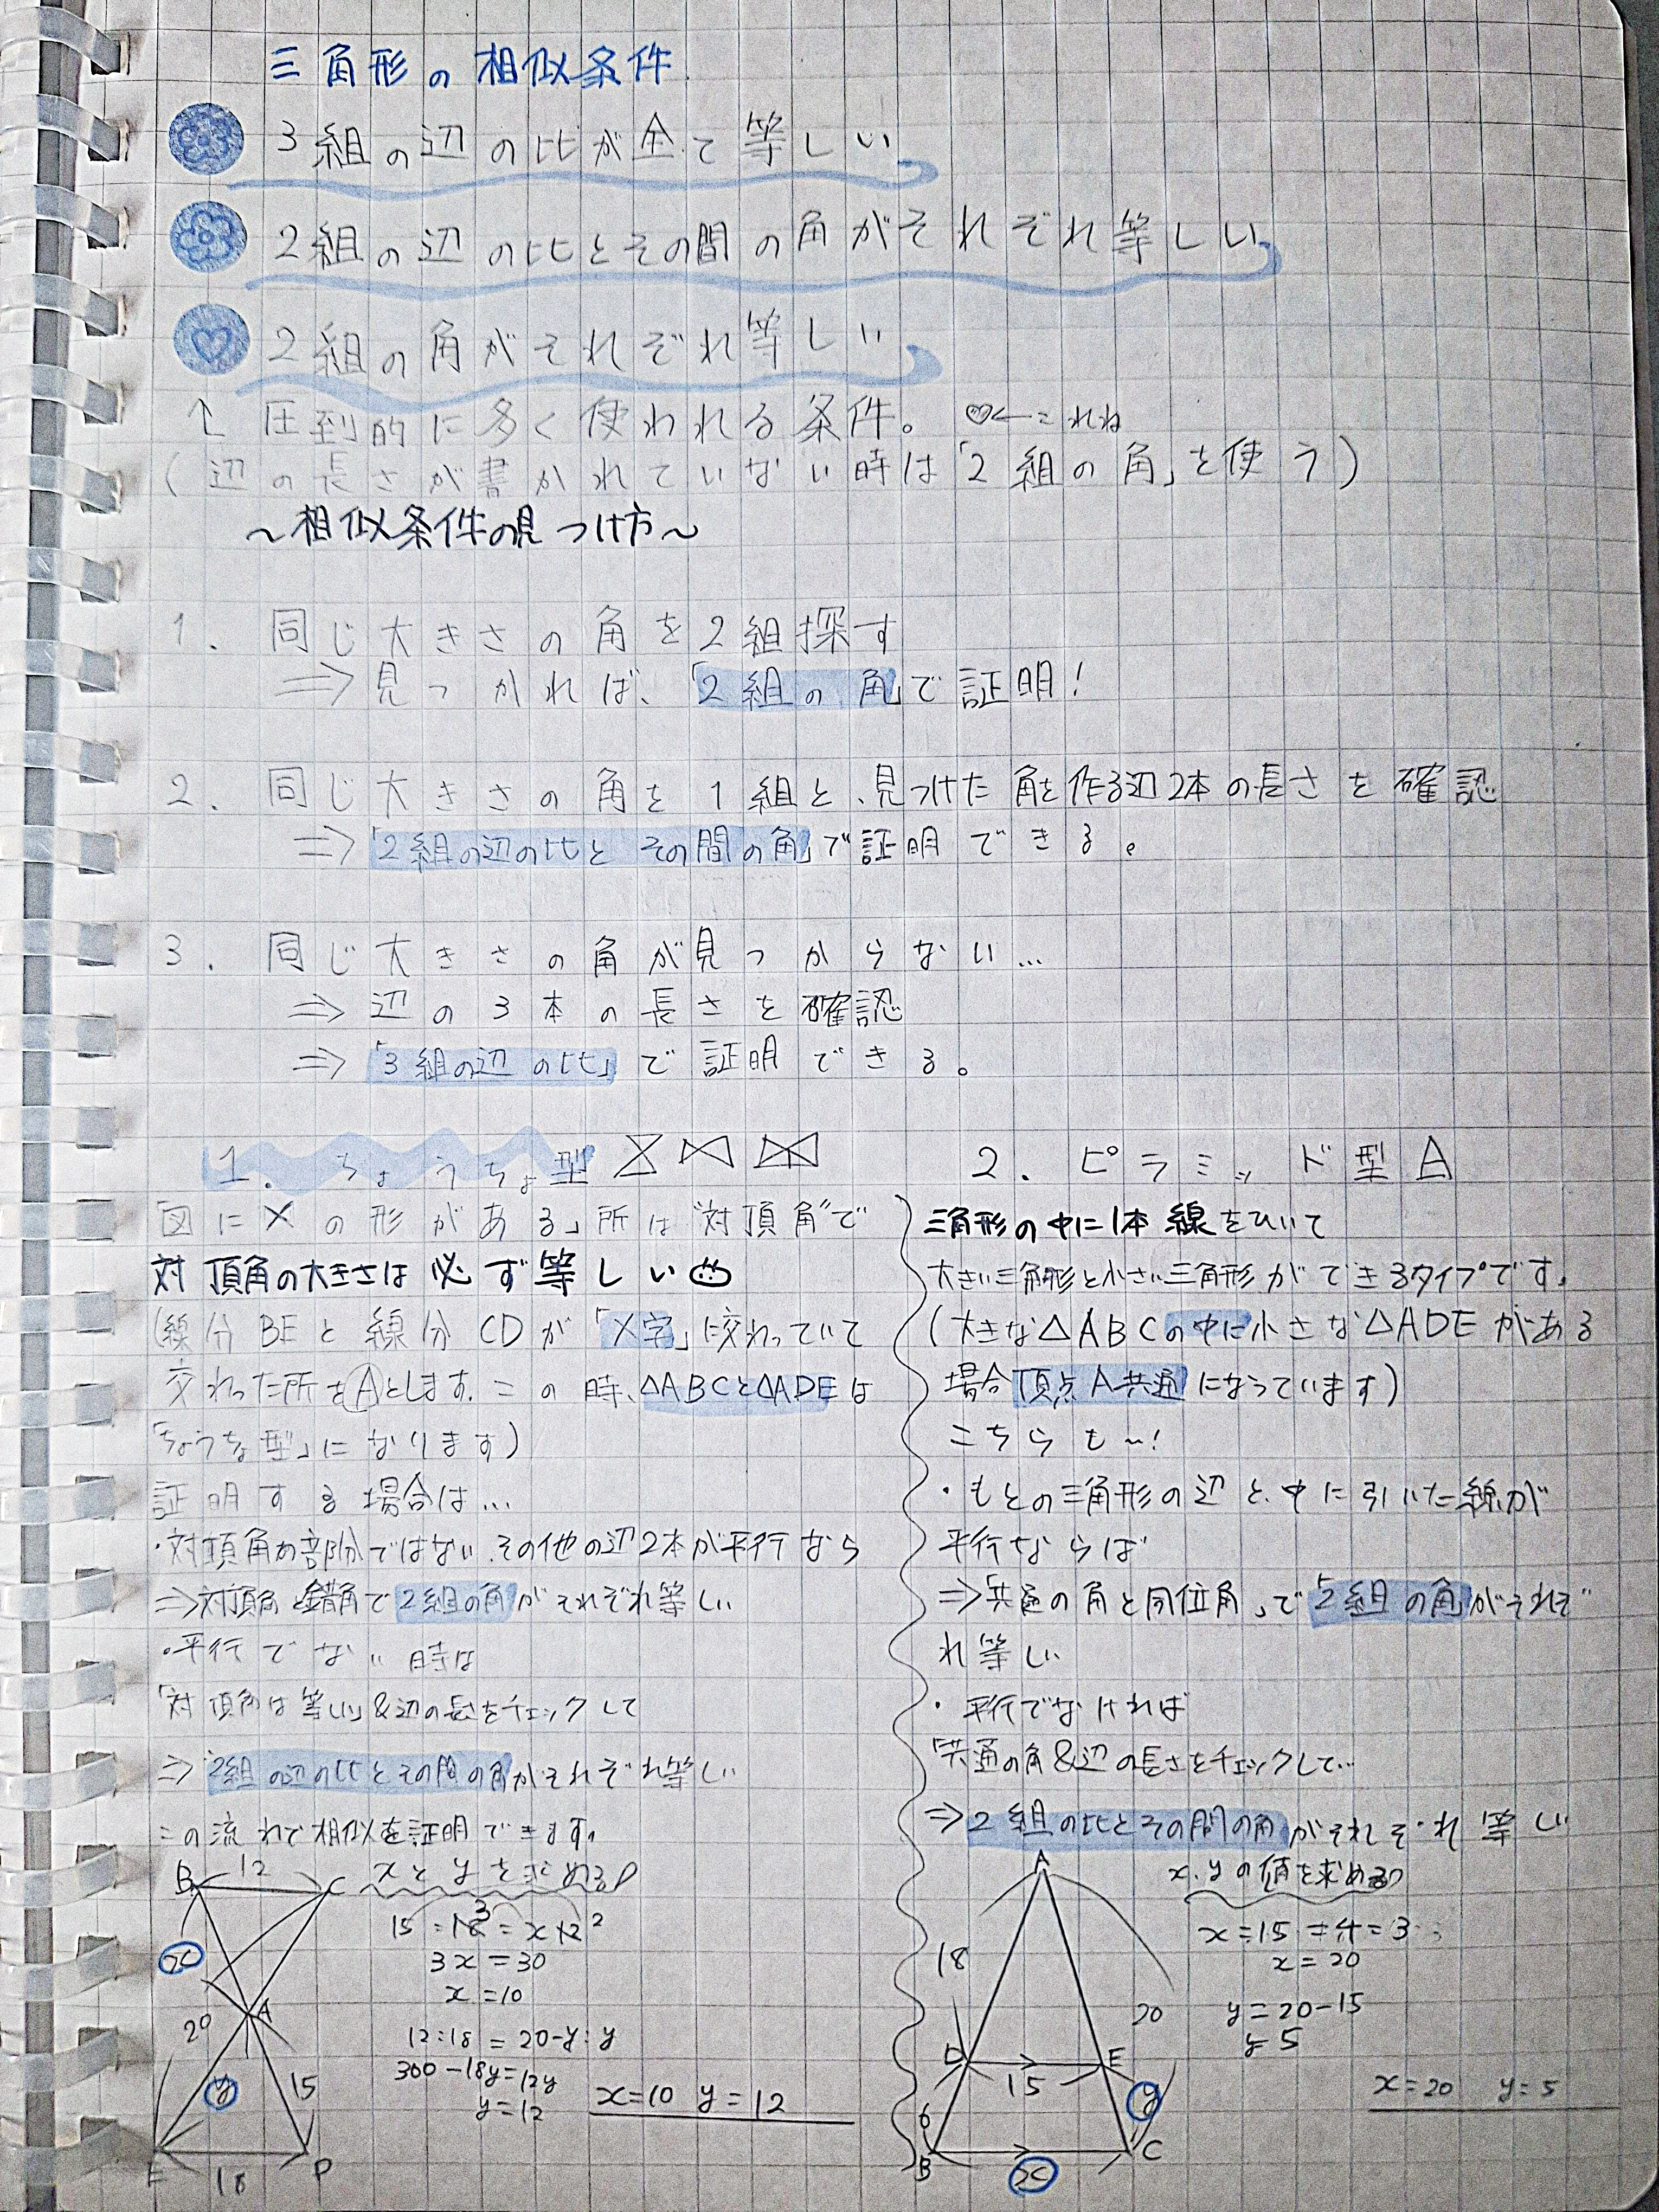 三角形の相似条件
3組の辺の比が全て等しい
2組の辺の比とその間の角がそれぞれ等しい
2組の角がそれぞれ等しい
↑ 圧倒的に多く使われる条件。 ♡←これね
(辺の長さが書かれていない時は「2組の角」を使う)
～相似条件の見つけ方～
1. 同じ大きさの角を2組探す
⇒見つかれば、「2組の角」で証明!
2. 同じ大きさの角を1組と、見つけた角を作る辺2本の長さを確認
⇒「2組の辺の比とその間の角」で証明できる。
3. 同じ大きさの角が見つからない…
⇒辺の3本の長さを確認
⇒「3組の辺の比」で証明できる。
1. ちょうちょ型
図に×の形がある」所は“対頂角”で
対頂角の大きさは必ず等しい
(線分BEと線分CDが「X字」に交わっていて
交わった所をAとします。この時、△ABCと△ADEは
「ちょうちょ型」になります)
証明する場合は…
・対頂角の部分ではない、その他の辺2本が平行なら
⇒対頂角と錯角で2組の角がそれぞれ等しい
・平行でない時は
「対頂角は等しい」&辺の長さをチェックして
⇒2組の辺の比とその間の角がそれぞれ等しい
この流れで相似を証明できます。
xとyを求める
B 12 C
x
20 A
y 15
E 18 D
15:18=x:12
3x=30
x=10
12:18=20-y:y
360-18y=12y
y=12
x=10 y=12
2. ピラミッド型
三角形の中に1本線をひいて
大きい三角形と小さい三角形ができるタイプです。
(大きな△ABCの中に小さな△ADEがある
場合頂点A共通になっています)
こちらも～!
・もとの三角形の辺と、中に引いた線が
平行ならば
⇒「共通の角と同位角」で「2組の角」がそれぞ
れ等しい
・平行でなければ
「共通の角&辺の長さをチェックして…
⇒2組の比とその間の角がそれぞれ等しい
x、yの値を求める
A
18
20
D 15 E
6 y
B x C
x:15=4:3
x=20
y=20-15
y=5
x=20 y=5